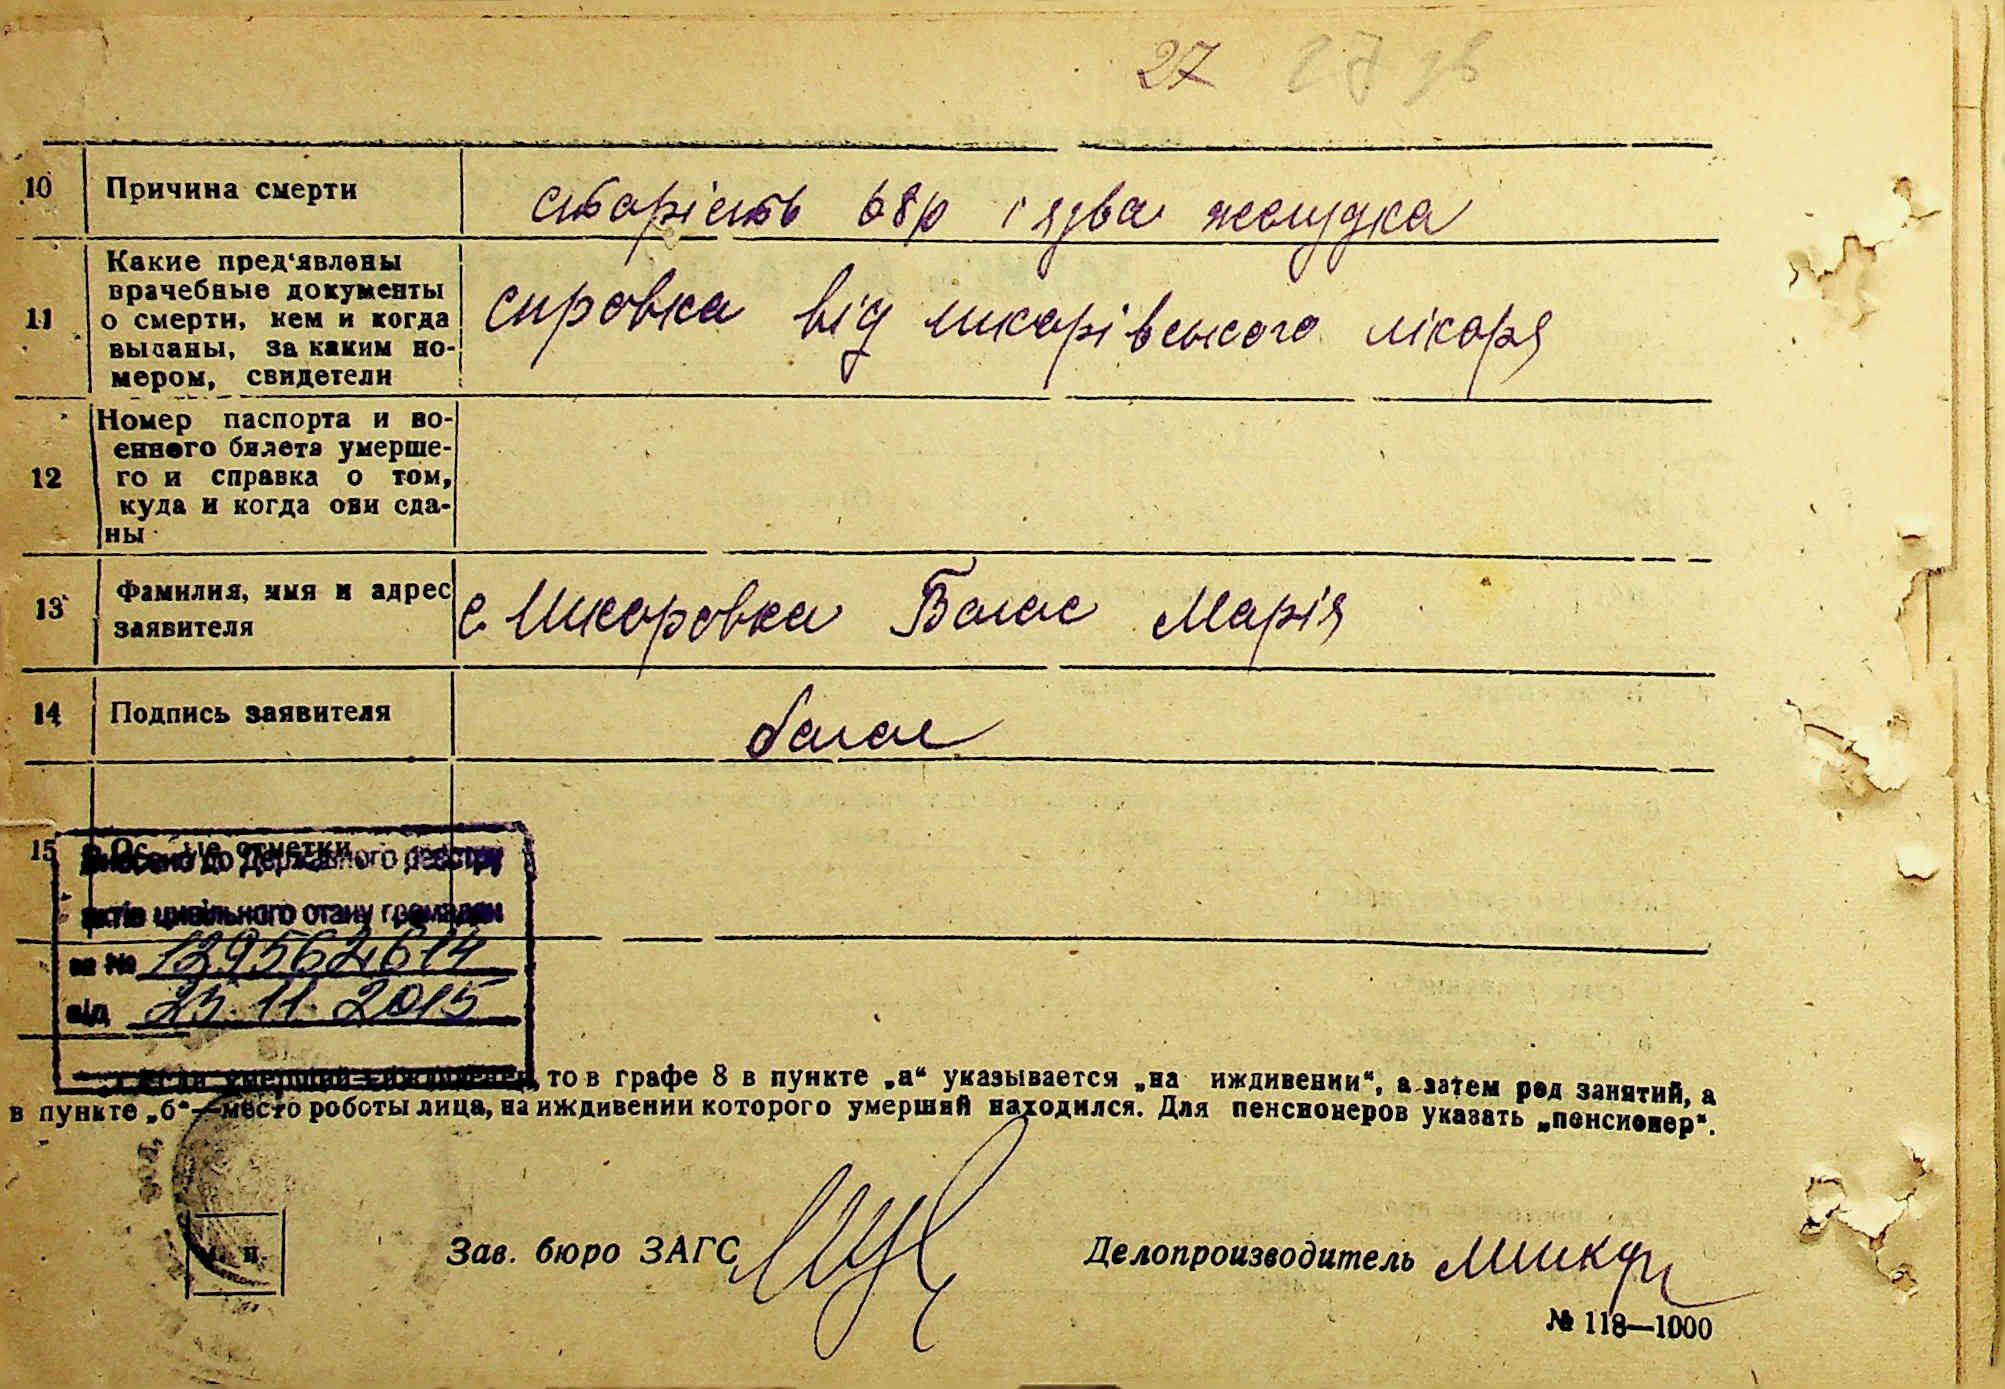 27 27 зв
10 Причина смерти старість 68р і язва желудка
11 Какие пред'явлены
врачебные документы
о смерти, кем и когда
выданы, за каким но-
мером, свидетели
справка від шкарівського лікаря
12 Номер паспорта и во-
енного билета умерше-
го и справка о том,
куда и когда они сда-
ны
13 Фамилия, имя и адрес
заявителя
с Шкаровка Балас Марія
14 Подпись заявителя балас
15 Особые отметки
Внесено до Державного реєстру
актів цивільного стану громадян
за №
від 23.11.2015
Если умерший иждивенец, то в графе 8 в пункте „а“ указывается „на иждивении“, а затем род занятий, а
в пункте „б“—место роботы лица, на иждивении которого умерший находился. Для пенсионеров указать „пенсионер“.
м. п.
Зав. бюро ЗАГС
Делопроизводитель
№ 118—1000